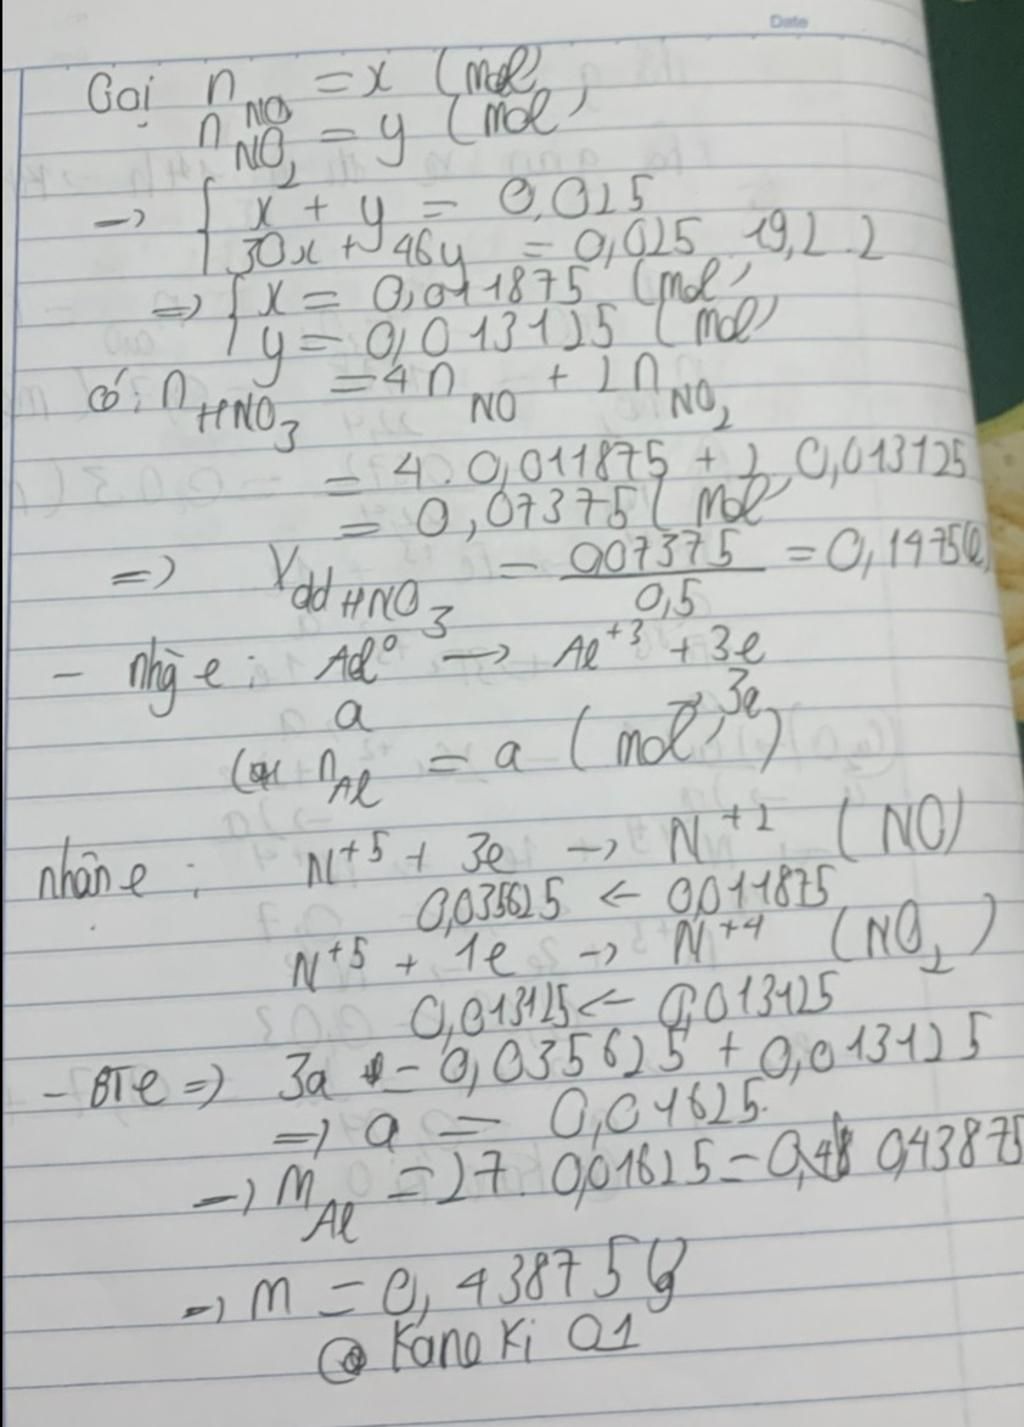 Date
Gọi n NO = x (mol)
n NO2 = y (mol)
→ { x + y = 0,025
30x + 46y = 0,025 19,2.2
⇒ { x = 0,011875 (mol)
y = 0,013125 (mol)
có: n HNO3 = 4 n NO + 2 n NO2
= 4.0,011875 + 2.0,013125
= 0,07375 (mol)
⇒ Vdd HNO3 = 007375 / 0,5 = 0,1475(l)
- nhg e: Al⁰ → Al⁺³ + 3e
a → 3a
n Al = a (mol)
nhân e: N⁺⁵ + 3e → N⁺² (NO)
0,035625 ← 0,011875
N⁺⁵ + 1e → N⁺⁴ (NO2)
0,013125 ← 0,013125
- BTe ⇒ 3a = 0,035625 + 0,013125
⇒ a = 0,01625.
→ m Al = 27.0,01625 = 0,43875
→ m = 0,43875g
@ Kane Ki 01